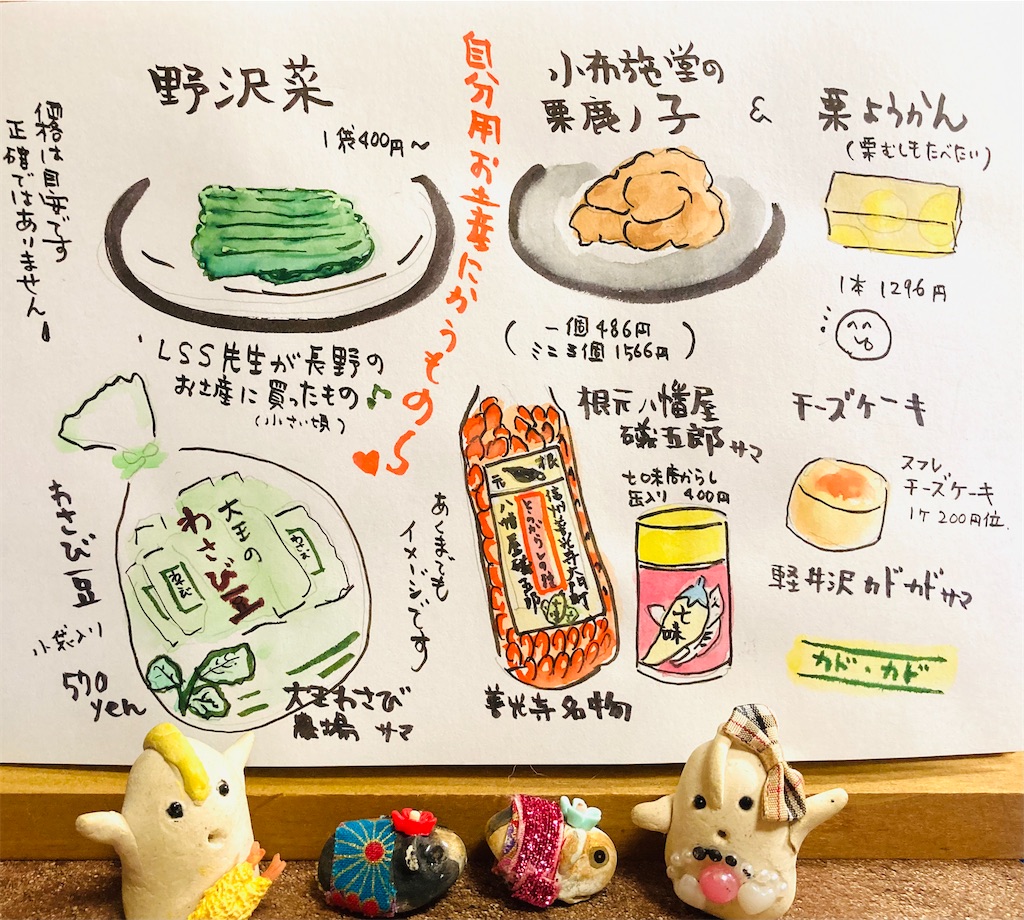 価格は目安です
正確ではありません!
野沢菜
1袋400円〜
LSS先生が長野の
お土産に買ったもの♪
(小さい頃)
自分用お土産にかうもの
小布施堂の
栗鹿ノ子
&
栗ようかん
(栗むしもたべたい)
(一個486円
ミニ3個1566円)
1本1296円
わさび豆
小袋入り
570
yen
大王の
わさび豆
わさび
わさび
大王わさび
農場サマ
あくまでも
イメージです
根元八幡屋
礒五郎サマ
七味唐からし
缶入り 400円
根
元
信州善光寺大門町
八幡屋礒五郎
七味
善光寺名物
チーズケーキ
スフレ
チーズケーキ
1ケ200円位.
軽井沢カドカドサマ
カド・カド